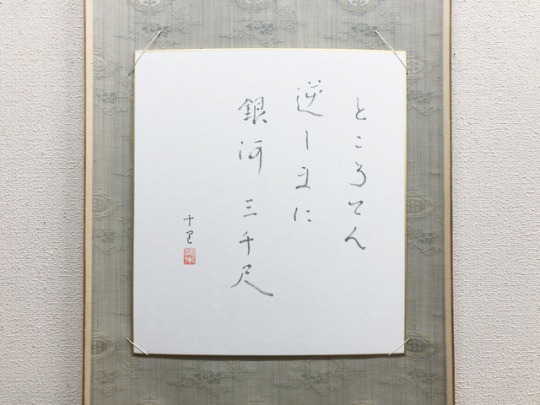 ところてん
逆しまに
銀河三千尺